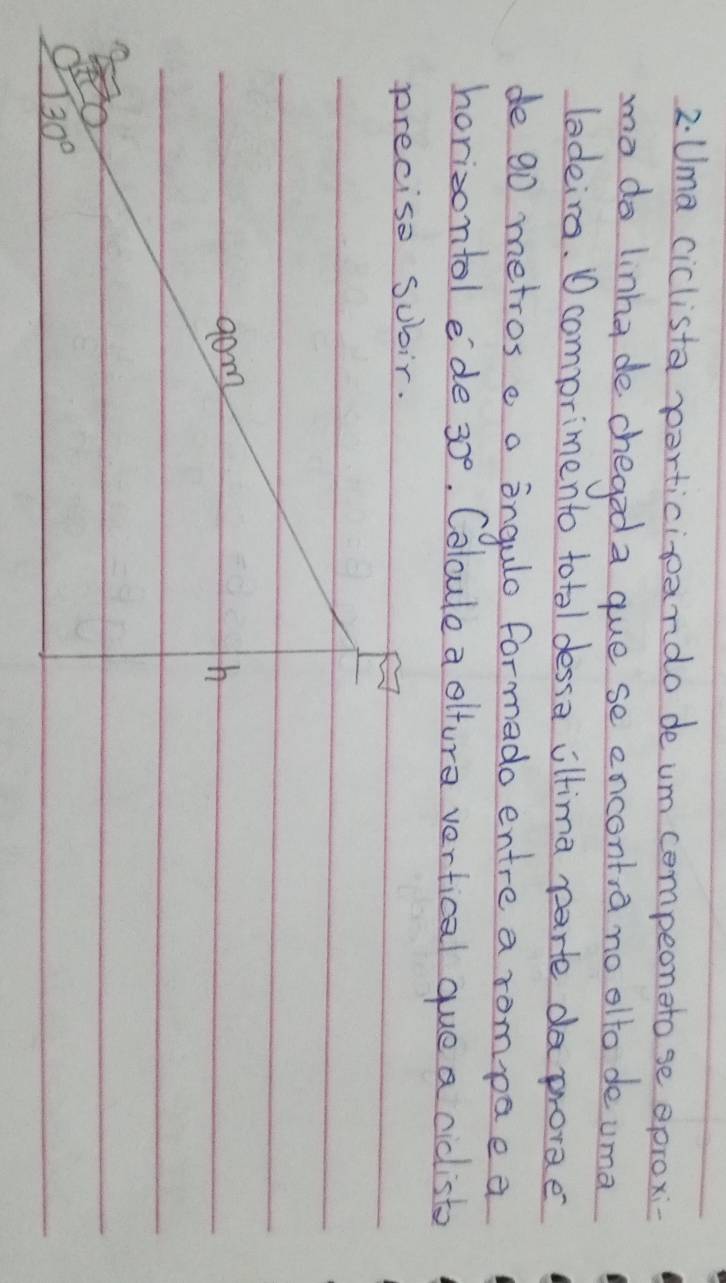 2. Uma ciclista participando de um campeonato se aproxi-
ma da linha de chegada que se encontra no alto de uma
ladeira. O comprimento total dessa última parte da prova é
de 90 metros e o ângulo formado entre a rampa e a
horizontal é de 30°. Calcule a altura vertical que a ciclista
precisa subir.
90m
h
30°